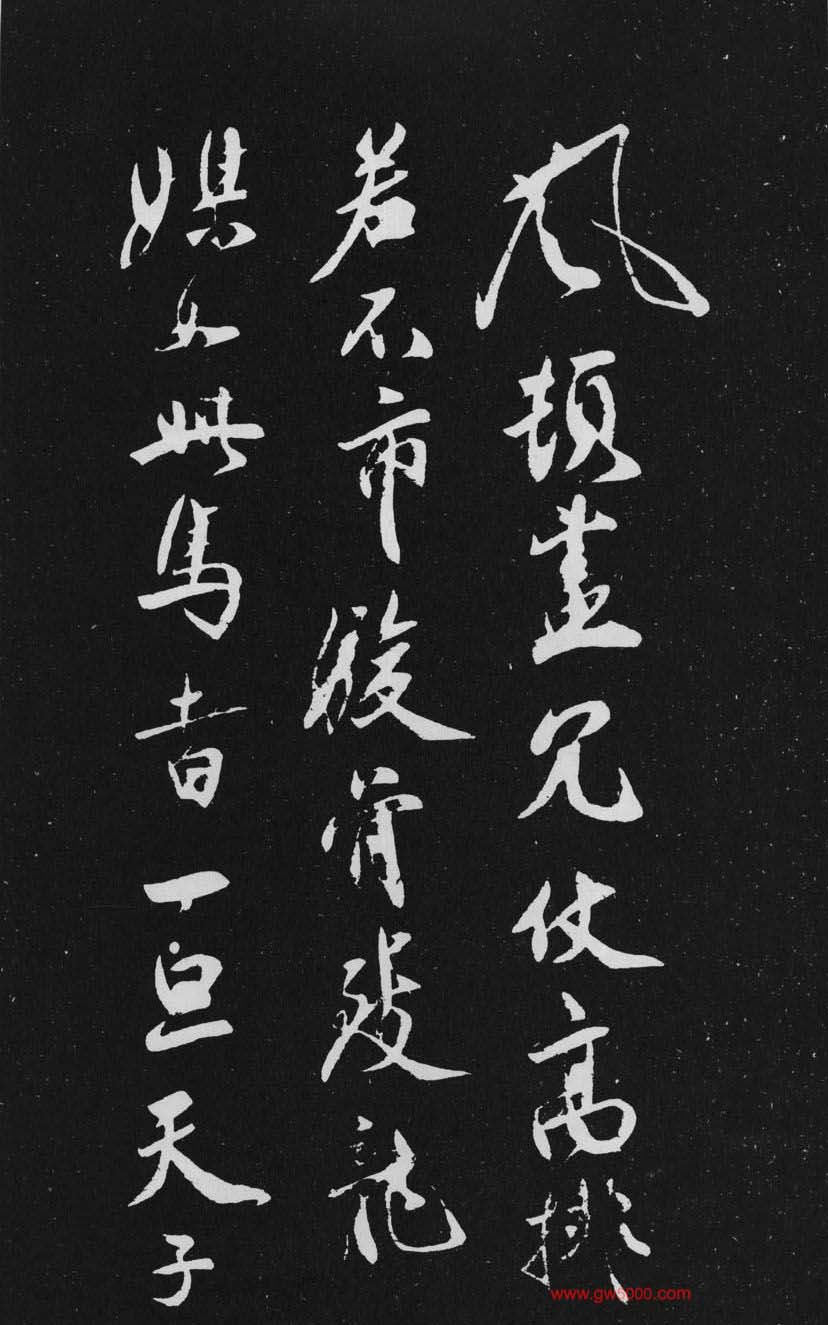 風頓盡冗仗高排
若不市駿骨致龍
媒如此馬者一旦天子
www.gw5000.com